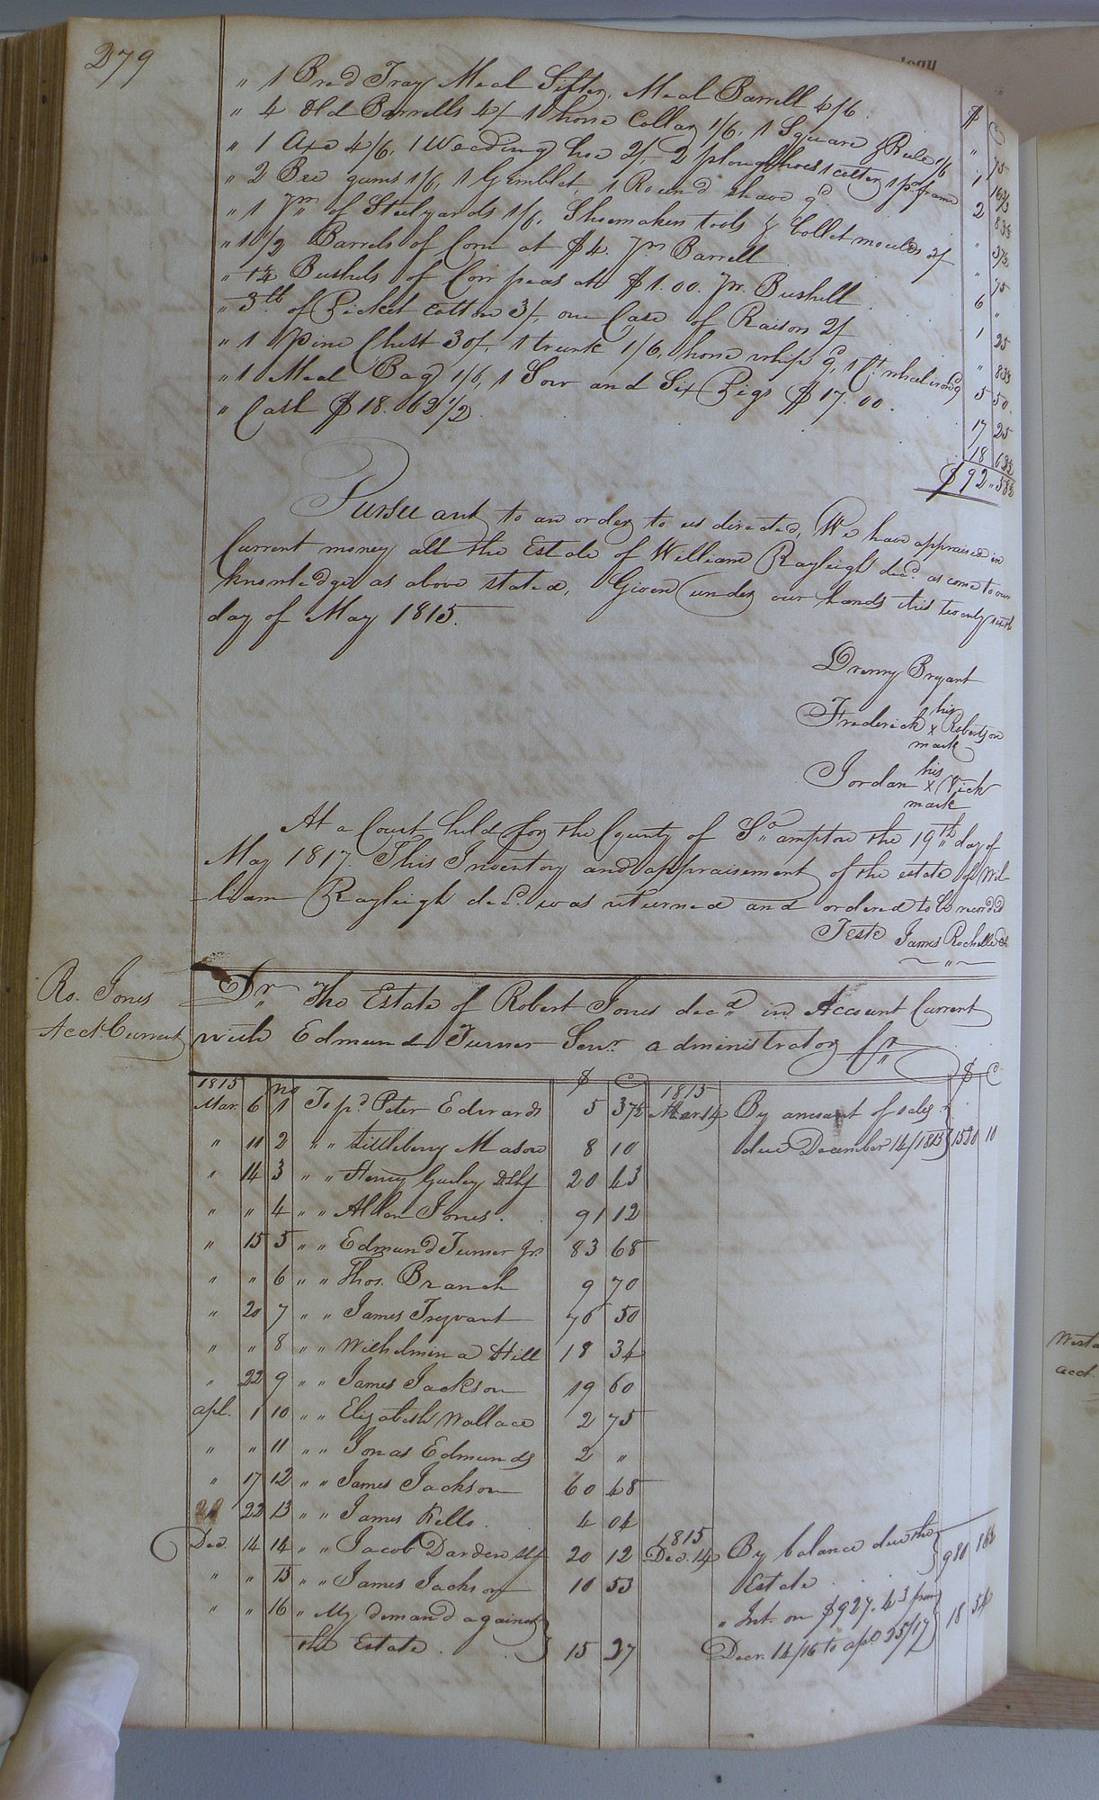 279
$ C
" 1 Bred Tray, Meal Sifter, Meal Barrell 4/6 " 75
" 4 Old Barrells 4/ 1 horse Collar 1/6, 1 Square & Rule 1/6 1
" 1 Axe 4/6, 1 Weeding hoe 2/, 2 plough hoes 1 cutter 1 pd. frame 2
" 2 Bee gums 1/6, 1 Gimblet, 1 Round shave 9d "
" 1 pr. of Steelyards 1/6, Shoemakers tools & bullet moulds 2/ " 75
" 1 1/2 Barrels of Corn at $4. pr. Barrell 6 "
" 1 1/4 Bushels of Corn peas at $1.00. pr. Bushell 1 25
" 3 lb of Picket Cotton 3/, one Case of Raisors 2/ "
" 1 Pine Chest 30/, 1 trunk 1/6, horse whip 9d, 1 Ct. wheel 5 50
" 1 Meal Bag 1/6, 1 Sow and Six Pigs $17.00. 17 25
" Cash $18.63 1/2. 18
$92
Pursuant to an order to us directed, We have appraised in
Current money all the Estate of William Rayleigh decd. as come to our
knowledge as above stated, Given under our hands this twenty
day of May 1815.
Drewry Bryant
his
Frederick x Robertson
mark
his
Jordan x Vick
mark
At a Court held for the County of So.ampton the 19th day of
May 1817. This Inventory and appraisement of the estate of Wil-
liam Rayleigh decd. was returned and ordered to be recorded
Teste James Rochelle
Ro. Jones
Acct. Current
Dr. The Estate of Robert Jones decd. in Account Current
with Edmund Turner Senr. administrator
1815 no $ C 1815 $ C
Mar. 6 1 To pd. Peter Edwards 5 37 1/2 Mar 14 By amount of sales
" 11 2 " " Littleberry Mason 8 10 due December 14/1815 1530 10
" 14 3 " " Henry Gurley 20 63
" " 4 " " Allen Jones. 91 12
" 15 5 " " Edmund Turner Jr. 83 68
" " 6 " " Thos. Branch 9 70
" 20 7 " " James Trezvant 76 50
" " 8 " " Wilhelmina Hill 18 34
" 22 9 " " James Jackson 19 60
apl. 1 10 " " Elizabeth Wallace 2 75
" " 11 " " Jonas Edmunds 2 "
" 17 12 " " James Jackson 60 48
22 13 " " James Kello. 4 04
Dec. 14 14 " " Jacob Darden 20 12 1815 Dec. 14 By balance due the
" " 15 " " James Jackson 10 53 Estate 980
" " 16 " My demand against " Int. on $927.43 from
the Estate. 15 27 Decr. 14/16 to apl 25/17 18 54
West
acct.